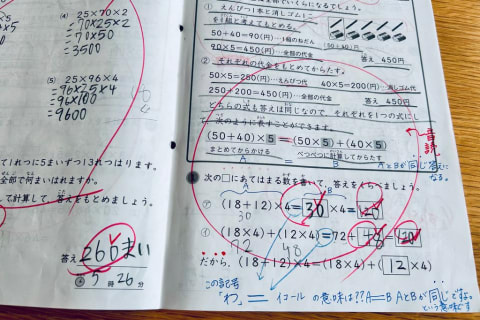 (4) 25×70×2
=70×25×2
=70×50
=3500
(5) 25×96×4
=96×25×4
=96×100
=9600
て1れつに5まいずつ13れつはります。
全部で何まいはれますか。
して計算して、答えをもとめましょう。
答え 260まい
5時 26分
① えんぴつ1本と消しゴム1こ
を1組と考えてもとめる。
50+40=90(円)…1組のねだん
(50+40)円
90×5=450(円)…全部の代金
答え 450円
② それぞれの代金をもとめてからたす。
50×5=250(円)…えんぴつ代 40×5=200(円)…消しゴム代
250+200=450(円)…全部の代金 答え 450円
どちらの式も答えは同じなので、それぞれを1つの式にし
て次のように表すことができます。
(50+40)×5=(50×5)+(40×5)
まとめてからかける = べつべつに計算してからたす
A B
音読
AとBが同じ答えになる。
次の□にあてはまる数を書いて、答えをくらべましょう。
A B
㋐ (18+12)×4=30×4=120
30
㋑ (18×4)+(12×4)=72+48=120
72 48
だから、(18+12)×4=(18×4)+(12×4)
この記号
「わ」 = イコール の意味は??A=B AとBが同じですよ。
という意味です